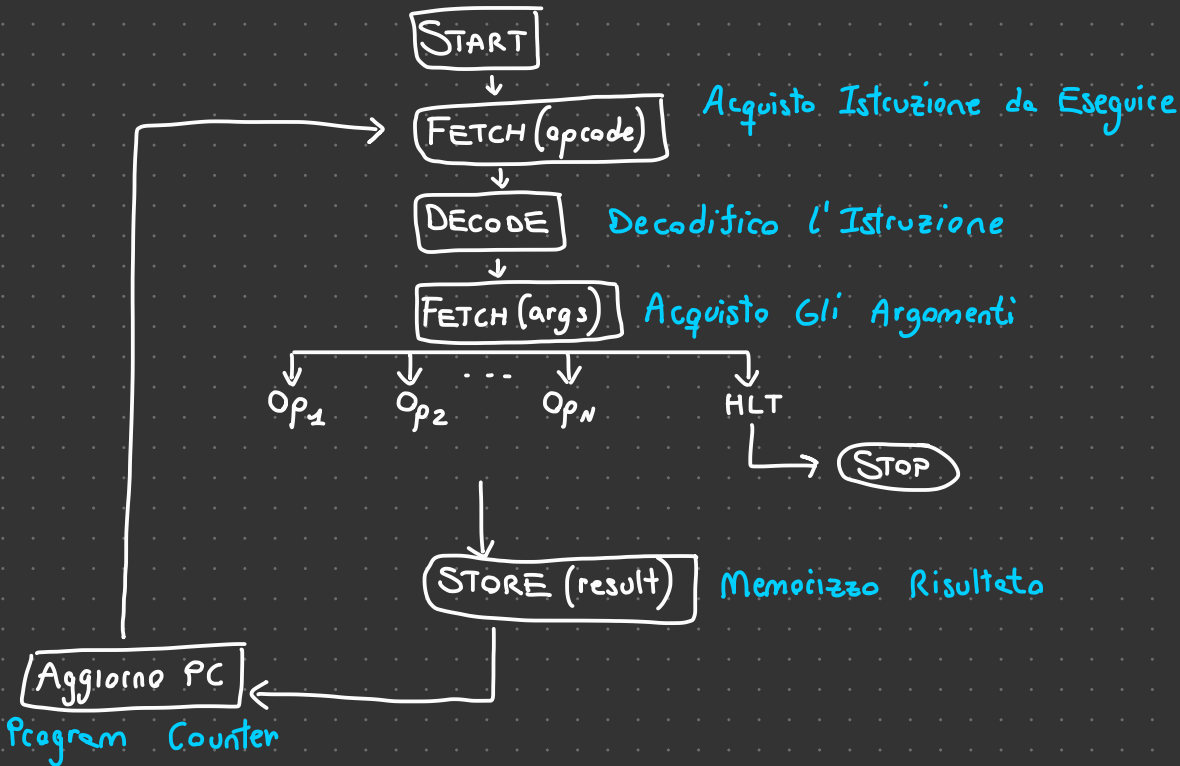 START
FETCH (opcode)
Acquisto Istruzione da Eseguire
DECODE
Decodifico l'Istruzione
FETCH (args)
Acquisto Gli Argomenti
Op1 Op2 ... OpN HLT
STOP
STORE (result)
Memorizzo Risultato
Aggiorno PC
Program Counter